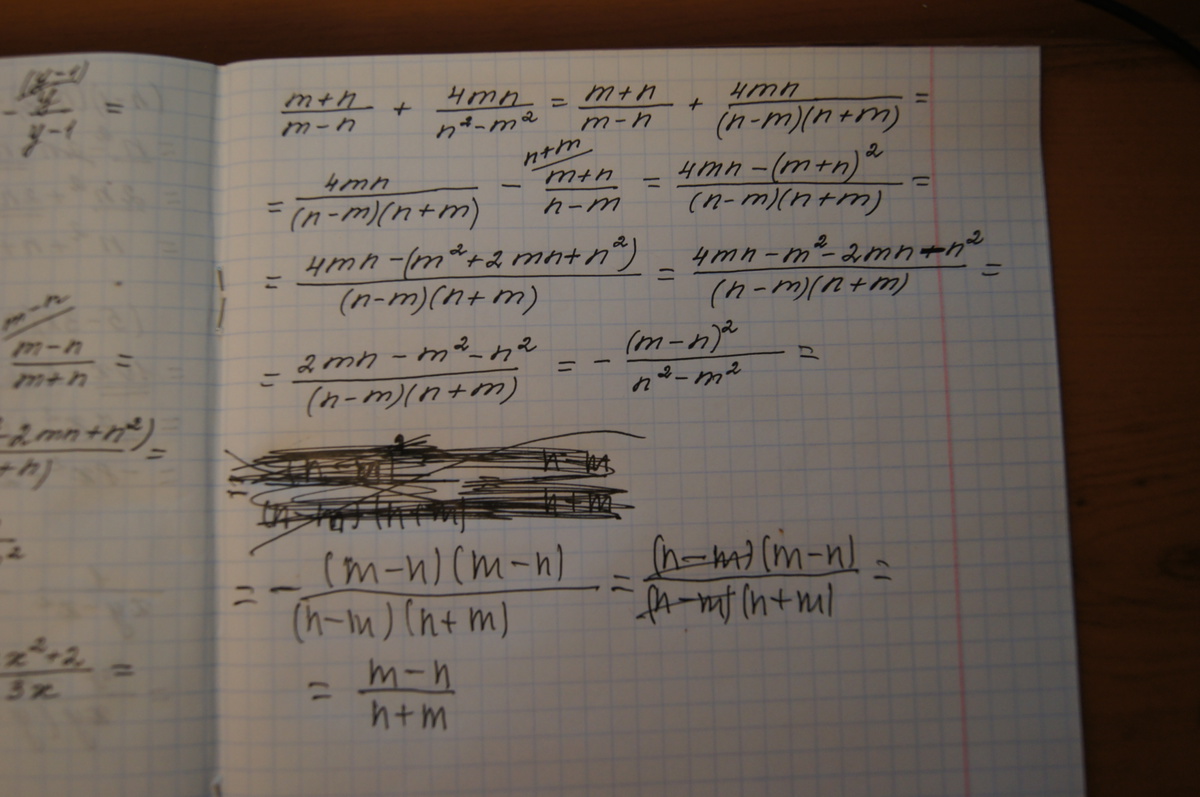 (y-1)
- y/(y-1) =
m-n
(m-n)/(m+n) =
2mn+n²) =
+n)
x²+2/3x =
(m+n)/(m-n) + 4mn/(n²-m²) = (m+n)/(m-n) + 4mn/((n-m)(n+m)) =
n+m
= 4mn/((n-m)(n+m)) - (m+n)/(n-m) = (4mn-(m+n)²)/((n-m)(n+m)) =
= (4mn-(m²+2mn+n²))/((n-m)(n+m)) = (4mn-m²-2mn-n²)/((n-m)(n+m)) =
= (2mn-m²-n²)/((n-m)(n+m)) = - (m-n)²/(n²-m²) =
= - ((m-n)(m-n))/((n-m)(n+m)) = ((n-m)(m-n))/((n-m)(n+m)) =
= (m-n)/(n+m)